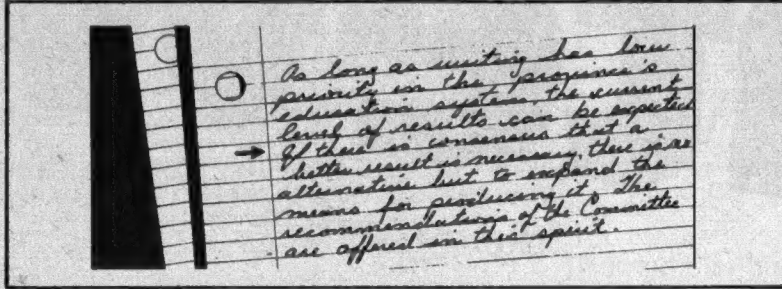 As long as writing has low
priority in the province's
education system, the current
level of results can be expected
If there is consensus that a
better result is necessary, there is no
alternative but to expand the
means for producing it. The
recommendations of the Committee
are offered in this spirit.